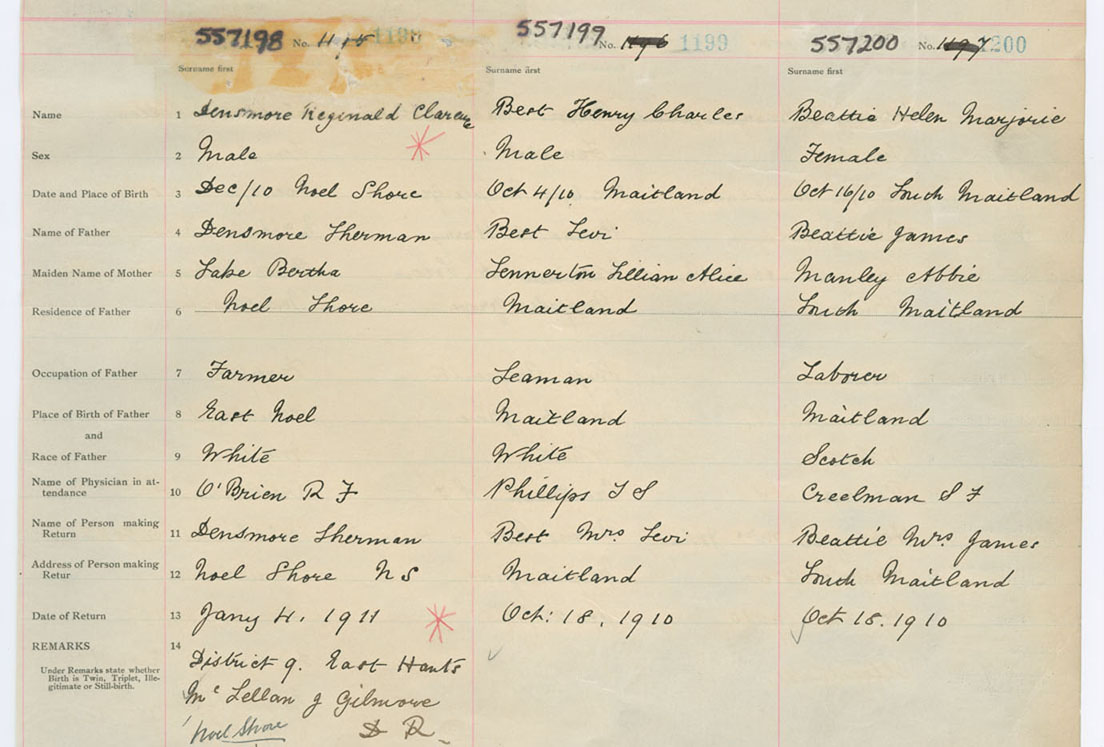 557198 No. 1198 557199 No. 1196 1199 557200 No. 1197 1200
Surname first Surname first Surname first
Name 1 Densmore Reginald Clarence Best Henry Charles Beattie Helen Marjorie
Sex 2 Male Male Female
Date and Place of Birth 3 Dec/10 Noel Shore Oct 4/10 Maitland Oct 16/10 South Maitland
Name of Father 4 Densmore Sherman Best Levi Beattie James
Maiden Name of Mother 5 Lake Bertha Lennerton Lillian Alice Manley Abbie
Residence of Father 6 Noel Shore Maitland South Maitland
Occupation of Father 7 Farmer Seaman Laborer
Place of Birth of Father 8 East Noel Maitland Maitland
and
Race of Father 9 White White Scotch
Name of Physician in at-
tendance 10 O'Brien R F Phillips T S Creelman S F
Name of Person making
Return 11 Densmore Sherman Best Mrs Levi Beattie Mrs James
Address of Person making
Retur 12 Noel Shore N S Maitland South Maitland
Date of Return 13 Jany 4. 1911 Oct: 18. 1910 Oct 18. 1910
REMARKS 14
Under Remarks state whether
Birth is Twin, Triplet, Ille-
gitimate or Still-birth.
District 9. East Hants
McLellan J Gilmore
Noel Shore D R